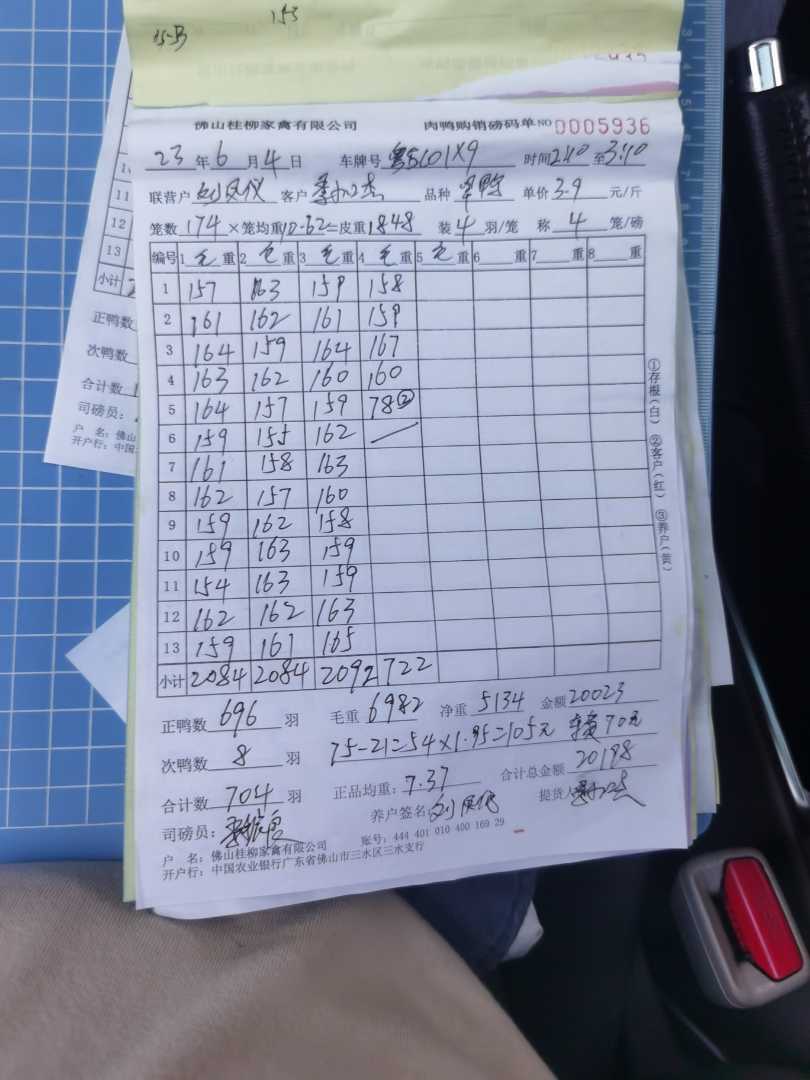 15-B
153
佛山桂柳家禽有限公司 肉鸭购销磅码单 NO 0005936
23 年 6 月 4 日 车牌号 粤E101X9 时间 2:10 至 3:10
联营户 刘凤仪 客户 品种 单价 3.9 元/斤
笼数 174 ×笼均重 10.62 =皮重 1848 装 4 羽/笼 称 4 笼/磅
编号 1 毛 重 2 毛 重 3 毛 重 4 毛 重 5 毛 重 6 重 7 重 8 重
1 157 163 159 158
2 161 162 161 159
3 164 159 164 167
4 163 162 160 160
5 164 157 159 78②
6 159 155 162
7 161 158 163
8 162 157 160
9 159 162 158
10 159 163 159
11 154 163 159
12 162 162 163
13 159 161 165
小计 2084 2084 2092 722
正鸭数 696 羽 毛重 6982 净重 5134 金额 20023
次鸭数 8 羽 75-21=54×1.95=105元 70元
合计数 704 羽 正品均重: 7.37 合计总金额 20198
司磅员: 养户签名: 刘凤仪 提货人
户 名: 佛山桂柳家禽有限公司 账号: 444 401 010 400 169 29
开户行: 中国农业银行广东省佛山市三水区三水支行
①存根(白) ②客户(红) ③养户(黄)
11
12
13
小计
正鸭数
次鸭数
合计数
司磅员:
户 名: 佛山
开户行: 中国